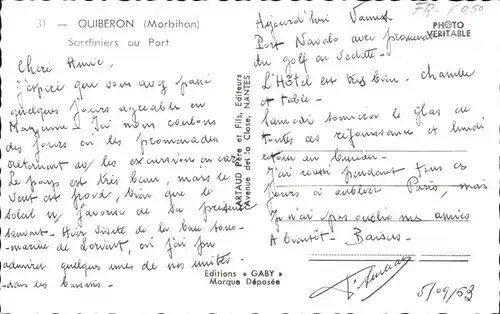 31 — QUIBERON (Morbihan)
Sardiniers au Port
Chère Amie,
J'espère que vous avez passé
quelques jours agréables en
Mayenne - Ici nous coulons
des jours où les promenades
alternent av/ les excursions en car
Le pays est très beau, mais le
vent est froid, bien que le
soleil n/ favorise de sa présence
souvent - Hier visite de la base sous-
marine de Lorient, où j'ai pu
admirer quelques unes de nos unités
dans les bassins -
Aujourd'hui Vannes
Port Navalo avec promenade
du golf en vedette -
L'Hôtel est très bien - chambre
et table -
Samedi sonnera le glas de
toutes ces réjouissances et lundi
retour au bureau -
J'ai réussi pendant tous ces
jours à oublier Paris, mais
Je n'ai pas oublié mes amies
A bientôt - Baisers
5/09/53
PHOTO
VERITABLE
ARTAUD Père et Fils, Editeurs
Avenue de la Close, NANTES
Editions « GABY »
Marque Déposée